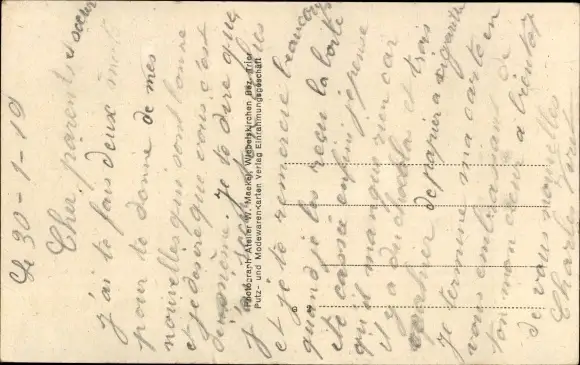 Le 30-1-19
Cher parents et soeur
J'ai te fais deux mots
pour te donne de mes
nouvelles qui sont bonne
et je desire que vous c'est
de même. Je te dire que
J'ai
et je te remercie beaucoup
quand je les reçu la boite
été cassée enfin je pense
qu'il manque rien car
il y a du chocolas et trois
de papier a cigarette
Je termine ma carte en
vous embrassant de
ton mon de a bientot
de vous nouvelles
Charles
Photograph Atelier W. Maeker, Wiebelskirchen Bez. Trier
Putz- und Modewaren Karten Verlag Einrahmungsgeschäft